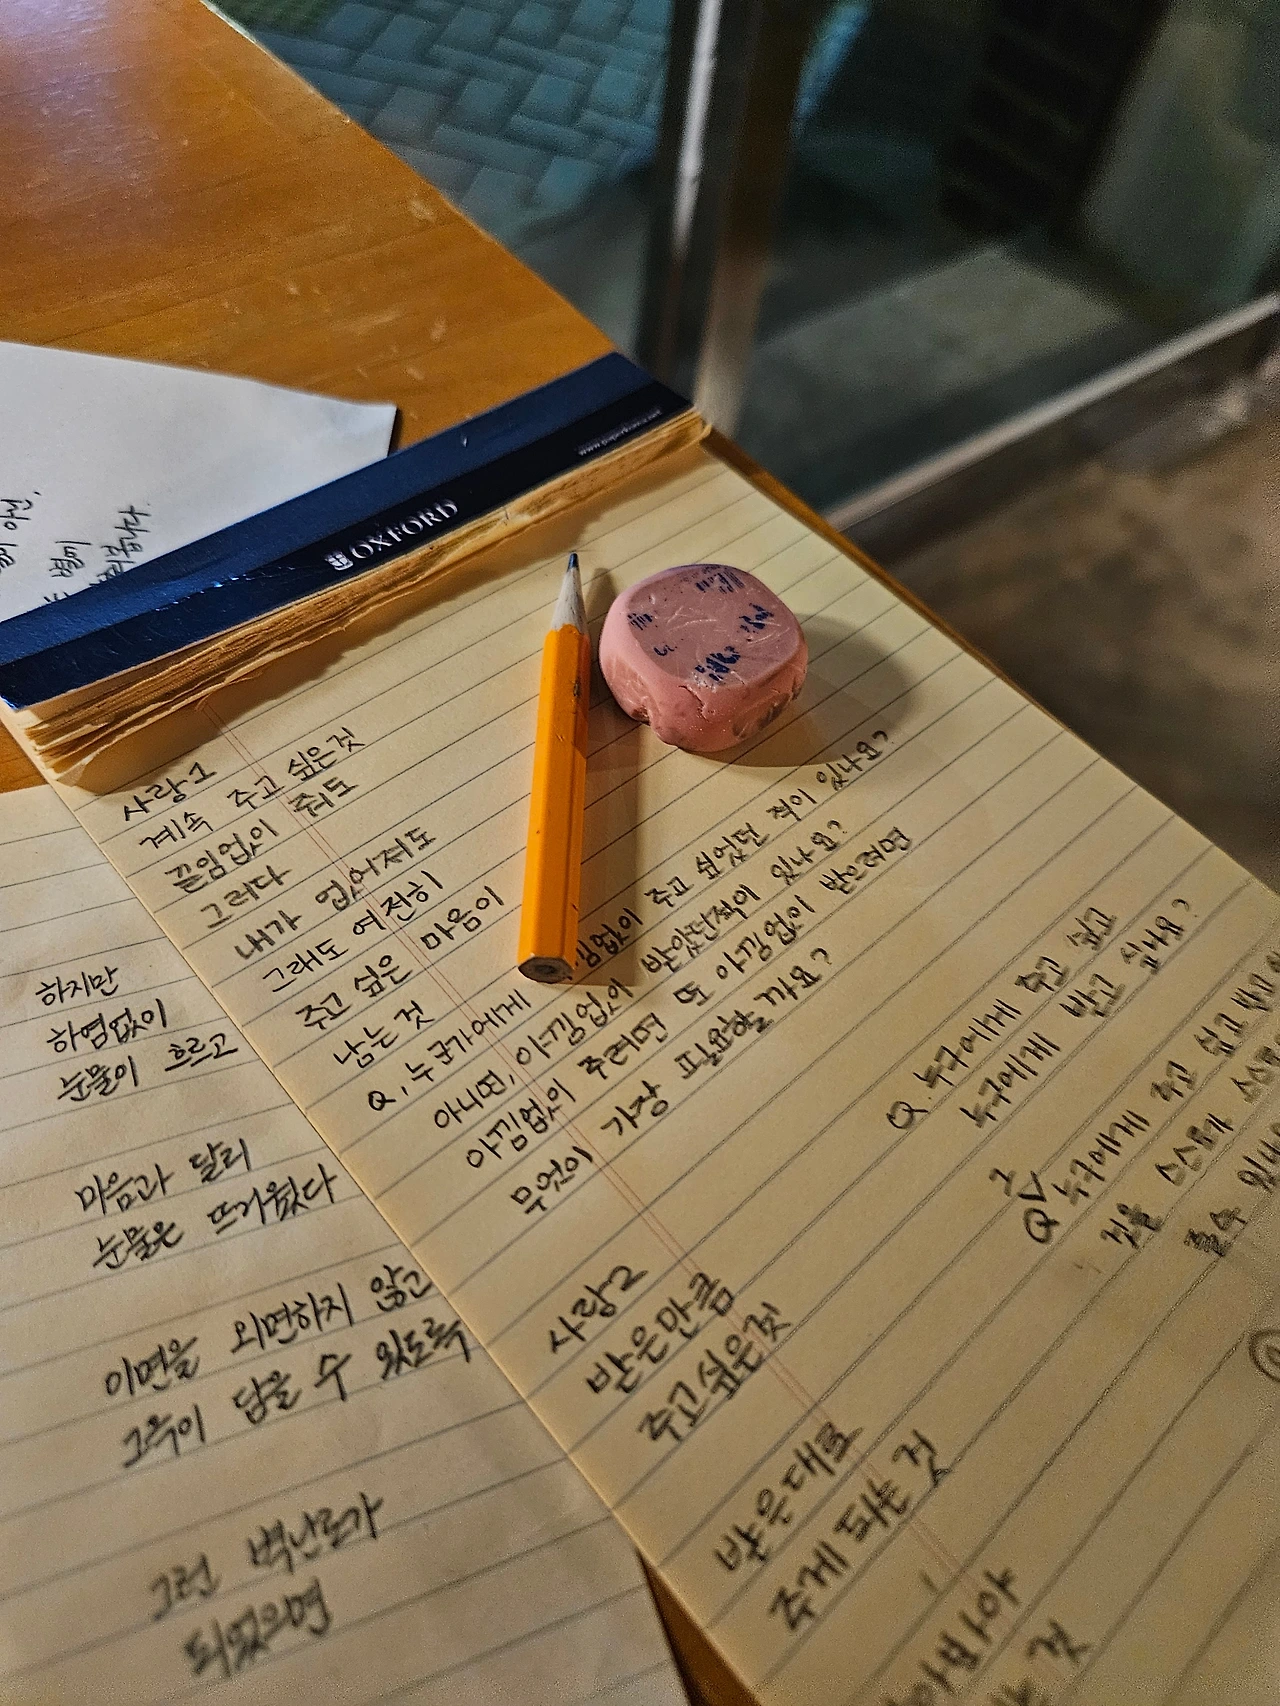 OXFORD
사랑1
계속 주고 싶은것
끊임없이 줘도
그러다
내가 없어져도
그래도 여전히
주고 싶은 마음이
남는것
Q. 누군가에게 낌없이 주고 싶었던 적이 있나요?
아니면, 아낌없이 받았던적이 있나요?
아낌없이 주려면 또 아낌없이 받으려면
무엇이 가장 필요할까요?
Q. 누구에게 주고 싶고
누구에게 받고 싶나요?
사랑2
받은만큼
주고싶은것
받은대로
주게 되는 것
하지만
하염없이
눈물이 흐르고
마음과 달리
눈물은 뜨거웠다
이면을 외면하지 않고
그윽이 담을 수 있도록
그런 벽난로가
되었으면